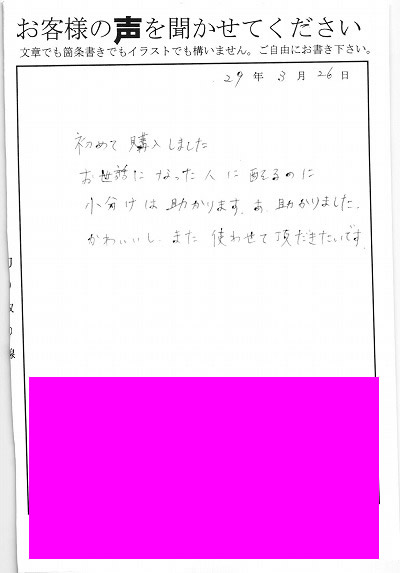 お客様の声を聞かせてください
文章でも箇条書きでもイラストでも構いません。ご自由にお書き下さい。
29年3月26日
初めて購入しました
お世話になった人に配るのに
小分けは助かります。あ、助かりました。
かわいいし、また使わせて頂だきたいです。